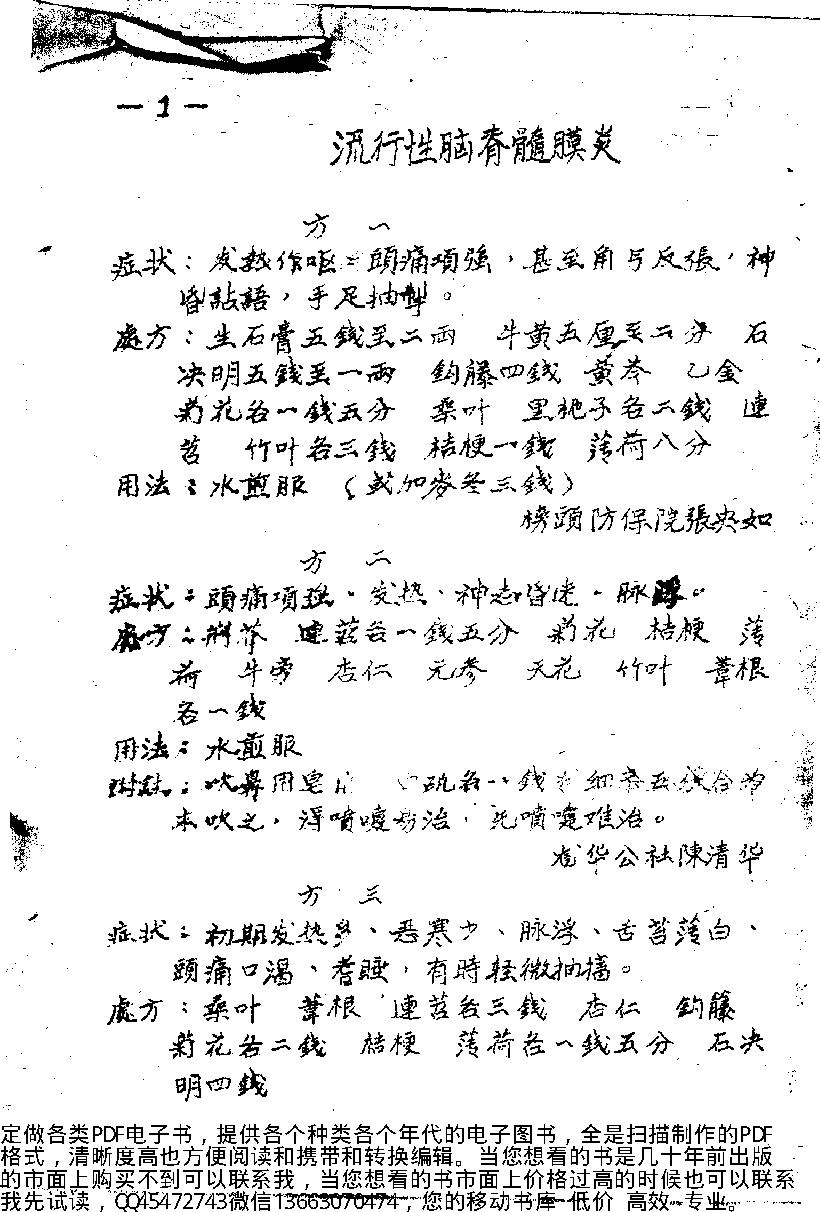 — 1 —
流行性脑脊髓膜炎
方 一
症状：发热作呕 頭痛項強，甚至角弓反張，神
昏詀語，手足抽掣。
處方：生石膏五錢至二兩 牛黄五厘至二分 石
决明五錢至一兩 鈎藤四錢 黄芩 乙金
菊花各一錢五分 桑叶 黑梔子各二錢 連
苕 竹叶各三錢 桔梗一錢 薄荷八分
用法：水煎服 （或加麥冬三錢）
榜頭防保院張央如
方 二
症状：頭痛項強、发热、神志昏迷、脉浮。
處方：荊芥 連苕各一錢五分 菊花 桔梗 薄
荷 牛旁 杏仁 元参 天花 竹叶 葦根
各一錢
用法：水煎服
吹鼻用皂 矾各一錢 細辛五 合為
末吹之，得噴嚏易治，无噴嚏难治。
龙华公社陳清华
方 三
症状：初期发热多、恶寒少、脉浮、舌苔薄白、
頭痛口渴、耆睡，有時轻微抽搐。
處方：桑叶 葦根 連苕各三錢 杏仁 鈎籐
菊花各二錢 桔梗 薄荷各一錢五分 石决
明四錢
定做各类PDF电子书，提供各个种类各个年代的电子图书，全是扫描制作的PDF
格式，清晰度高也方便阅读和携带和转换编辑。当您想看的书是几十年前出版
的市面上购买不到可以联系我，当您想看的书市面上价格过高的时候也可以联系
我先试读，QQ45472743微信13663070474，您的移动书库-低价 高效--专业。